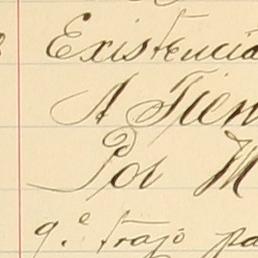 Existencia
A Tien
Por M
q.e trajo pa